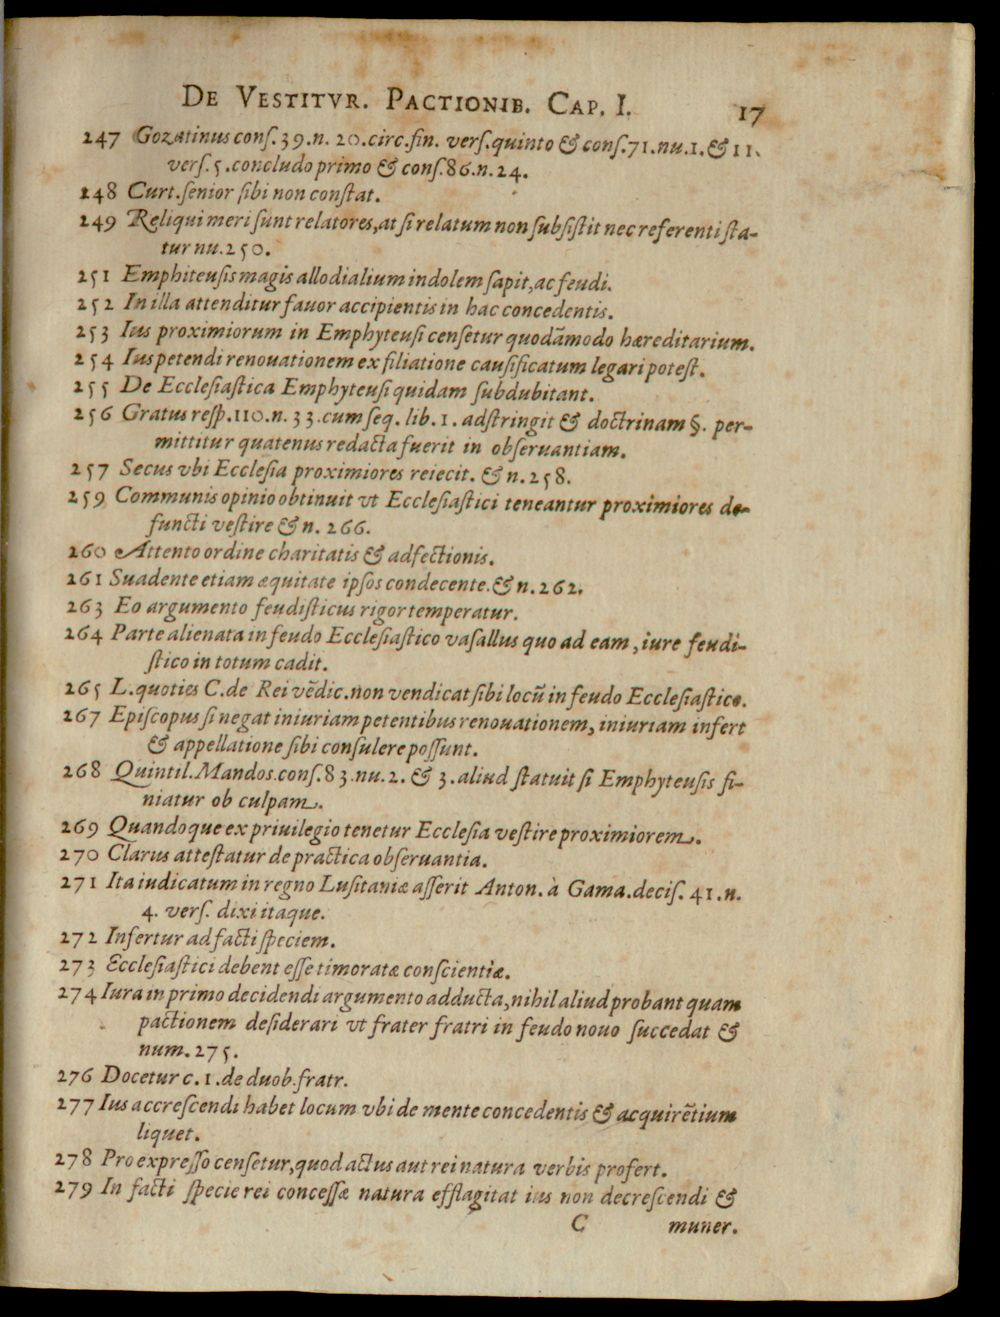 DE VESTITVR. PACTIONIB. CAP. I. 17
247 Gozatinus conſ. 39. n. 20. circ. fin. verſ. quinto & conſ. 71. nu. 1. & 11.
verſ. 5. concludo primo & conſ. 86. n. 24.
248 Curt. ſenior ſibi non conſtat.
249 Reliqui meri ſunt relatores, at ſi relatum non ſubſiſtit nec referenti ſta-
tur nu. 250.
251 Emphiteuſis magis allodialium indolem ſapit, ac feudi.
252 In illa attenditur fauor accipientis in hac concedentis.
253 Ius proximiorum in Emphyteuſi cenſetur quodãmodo hæreditarium.
254 Ius petendi renouationem ex filiatione cauſificatum legari poteſt.
255 De Eccleſiaſtica Emphyteuſi quidam ſubdubitant.
256 Gratus reſp. 110. n. 33. cum ſeq. lib. 1. adſtringit & doctrinam §. per-
mittitur quatenus redacta fuerit in obſeruantiam.
257 Secus vbi Eccleſia proximiores reiecit. & n. 258.
259 Communis opinio obtinuit vt Eccleſiaſtici teneantur proximiores de-
functi veſtire & n. 266.
260 Attento ordine charitatis & adfectionis.
261 Suadente etiam æquitate ipſos condecente. & n. 262.
263 Eo argumento feudiſticus rigor temperatur.
264 Parte alienata in feudo Eccleſiaſtico vaſallus quo ad eam, iure feudi-
ſtico in totum cadit.
265 L. quoties C. de Rei vẽdic. non vendicat ſibi locũ in feudo Eccleſiaſtico.
267 Epiſcopus ſi negat iniuriam petentibus renouationem, iniuriam infert
& appellatione ſibi conſulere poſſunt.
268 Quintil. Mandos. conſ. 83. nu. 2. & 3. aliud ſtatuit ſi Emphyteuſis fi-
niatur ob culpam.
269 Quandoque ex priuilegio tenetur Eccleſia veſtire proximiorem.
270 Clarus atteſtatur de practica obſeruantia.
271 Ita iudicatum in regno Luſitaniæ aſſerit Anton. à Gama. deciſ. 41. n.
4. verſ. dixi itaque.
272 Infertur ad facti ſpeciem.
273 Eccleſiaſtici debent eſſe timoratæ conſcientiæ.
274 Iura in primo decidendi argumento adducta, nihil aliud probant quam
pactionem deſiderari vt frater fratri in feudo nouo ſuccedat &
num. 275.
276 Docetur c. 1. de duob. fratr.
277 Ius accreſcendi habet locum vbi de mente concedentis & acquirẽtium
liquet.
278 Pro expreſſo cenſetur, quod actus aut rei natura verbis profert.
279 In facti ſpecie rei conceſſæ natura efflagitat ius non decreſcendi &
C muner.